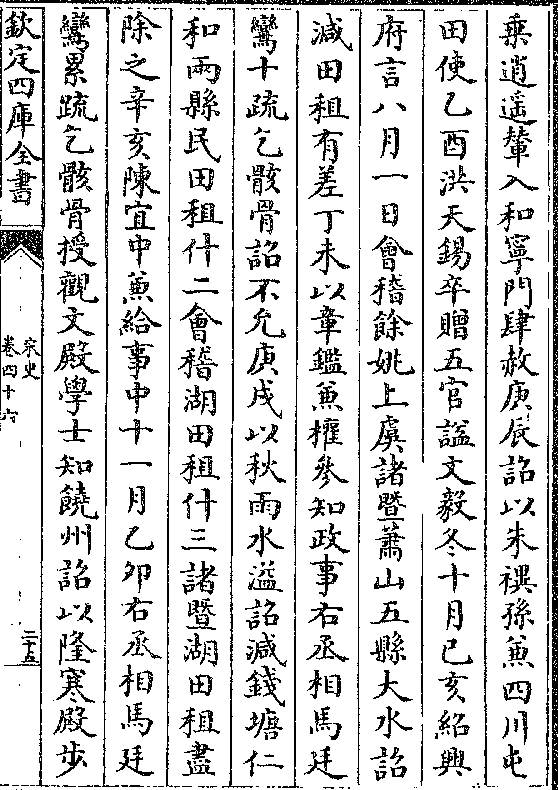 乗逍遥輦入和寧門肆赦庚辰詔以朱禩孫兼四川屯
田使乙酉洪天錫卒贈五官諡文毅冬十月己亥紹興
府言八月一日會稽餘姚上虞諸暨蕭山五縣大水詔
減田租有差丁未以章鑑兼權參知政事右丞相馬廷
鸞十疏乞骸骨詔不允庚戌以秋雨水溢詔減錢塘仁
和兩縣民田租什二會稽湖田租什三諸暨湖田租盡
除之辛亥陳宜中兼給事中十一月乙卯右丞相馬廷
鸞累疏乞骸骨授觀文殿學士知饒州詔以隆寒殿步
欽定四庫全書
宋史
卷四十六
二十五